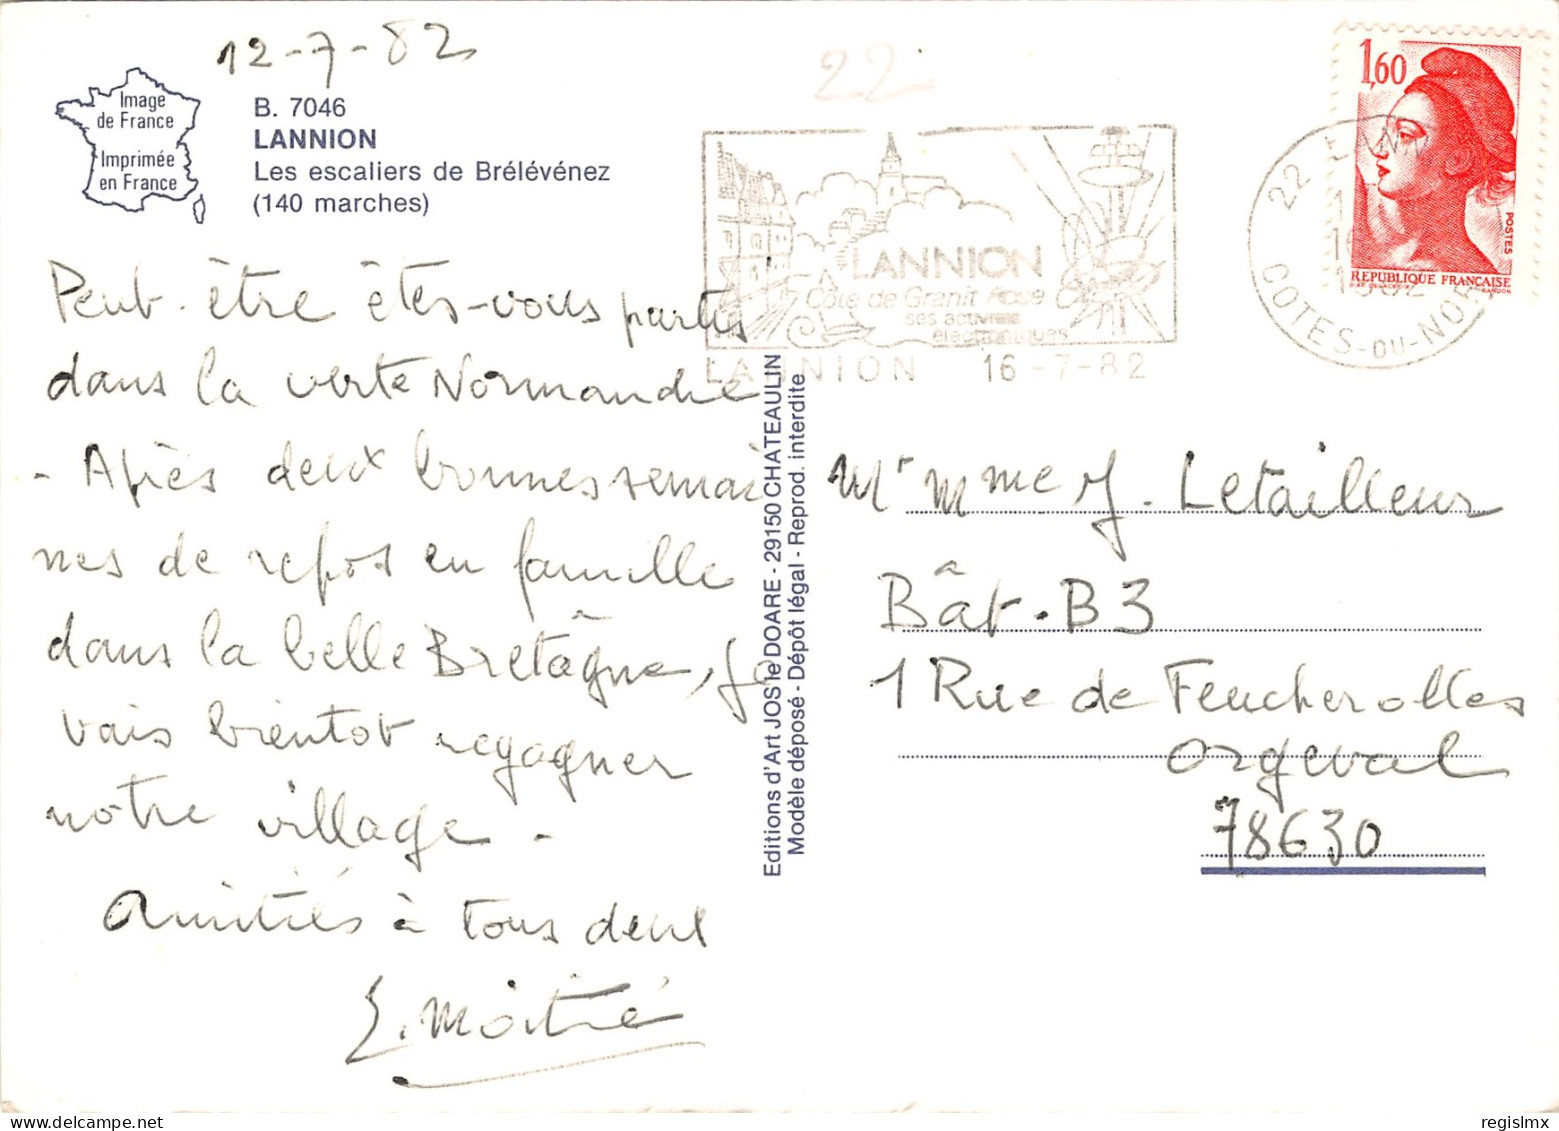 12-7-82
Image
de France
Imprimée
en France
B. 7046
LANNION
Les escaliers de Brélévénez
(140 marches)
Peut-être êtes-vous partis
dans la verte Normandie
- Après deux bonnes semai
nes de repos en famille
dans la belle Bretâgne, je
vais bientot regagner
notre village -
Amitiés à tous deux
Editions d'Art JOS le DOARE - 29150 CHATEAULIN
Modèle déposé - Dépôt légal - Reprod. interdite
22
LANNION
Côte de Granit Rose
ses activités
électroniques
LANNION 16-7-82
22 LANN
16
1982
COTES-DU-NORD
1,60
POSTES
REPUBLIQUE FRANÇAISE
Mr Mme J. Letailleur
Bât. B3
1 Rue de Feucherolles
Orgeval
78630
regislmx